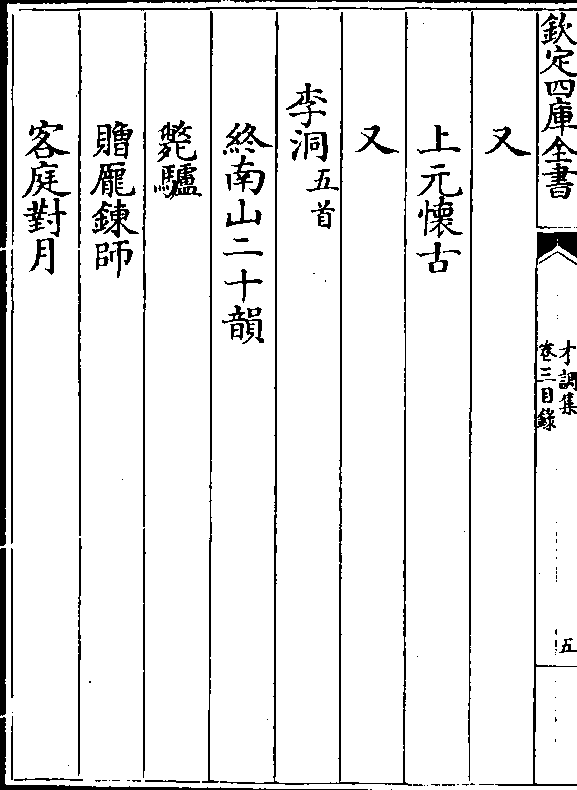 欽定四庫全書
才調集
卷三目錄
五
又
上元懷古
又
李洞五首
終南山二十韻
斃驢
贈龎鍊師
客庭對月